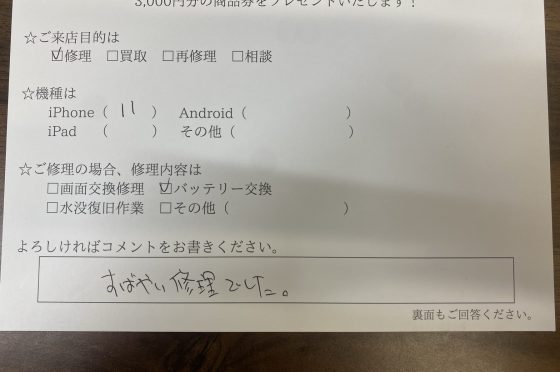 3,000円分の商品券をプレゼントいたします！
☆ご来店目的は
☑修理 □買取 □再修理 □相談
☆機種は
iPhone（ 11 ） Android（ ）
iPad （ ） その他（ ）
☆ご修理の場合、修理内容は
□画面交換修理 ☑バッテリー交換
□水没復旧作業 □その他（ ）
よろしければコメントをお書きください。
すばやい修理でした。
裏面もご回答ください。